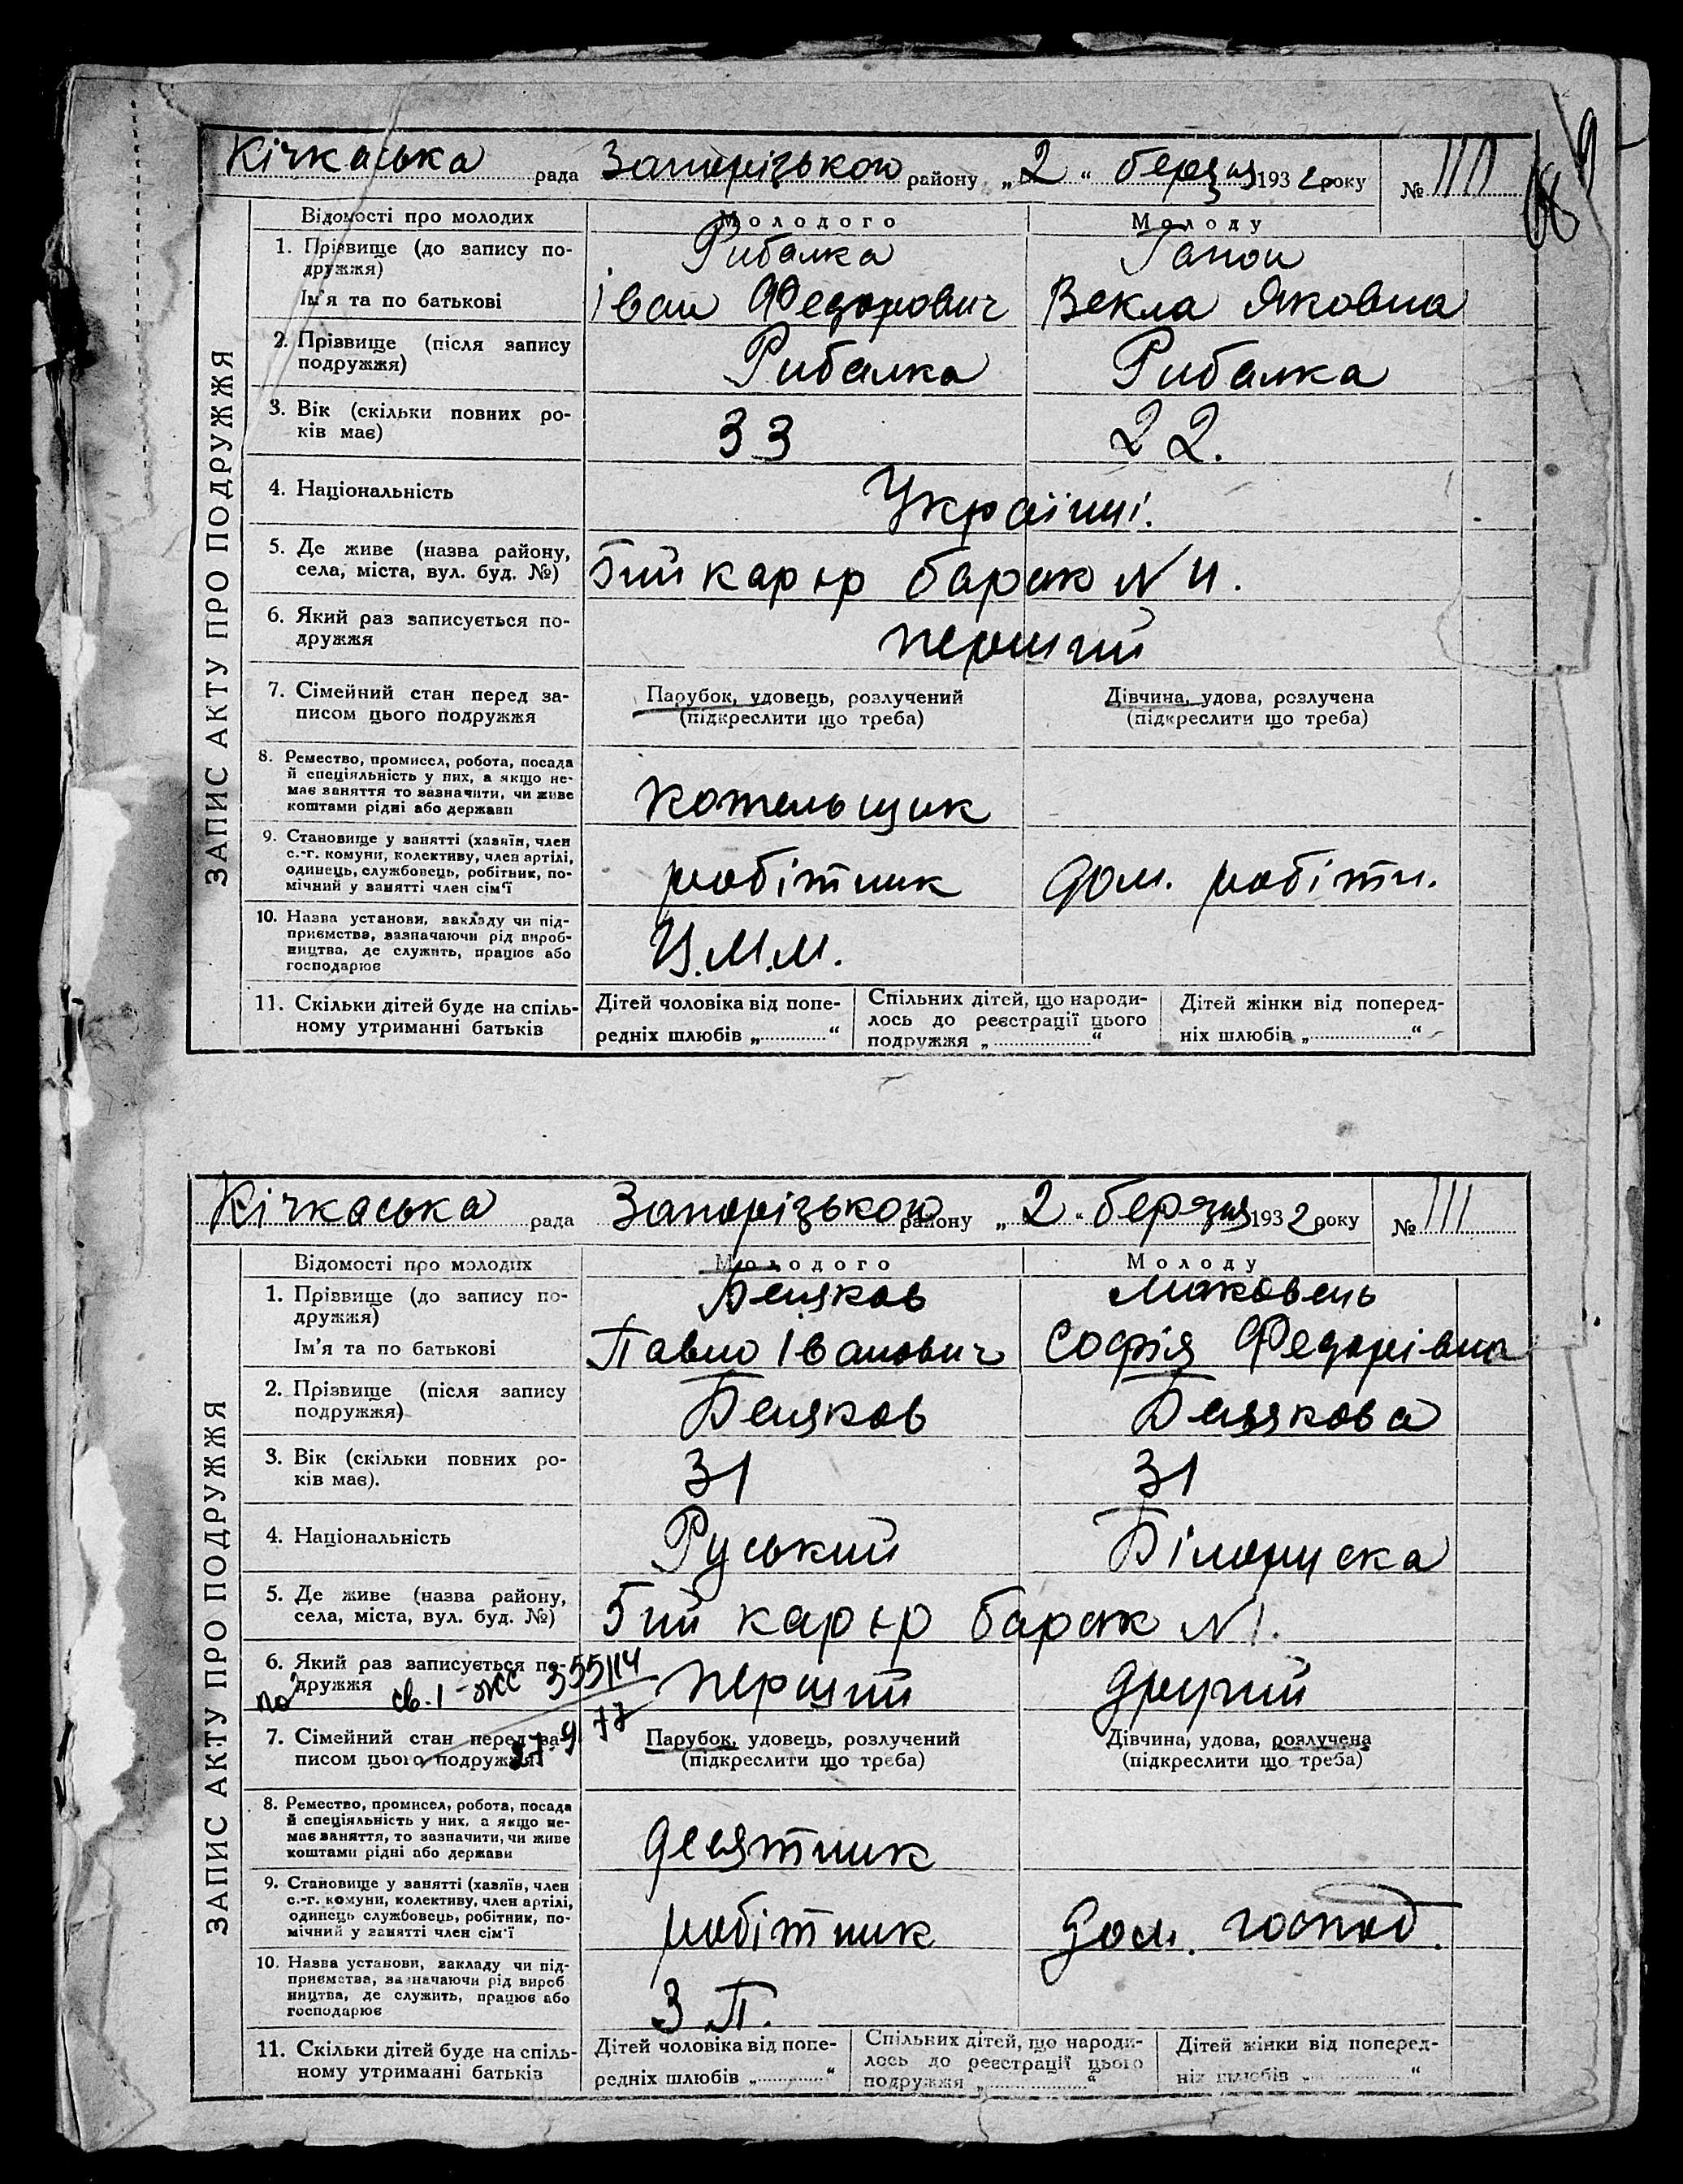 Кічкаська рада Запорізького району „2" березня 1932 року № 110
ЗАПИС АКТУ ПРО ПОДРУЖЖЯ
Відомості про молодих Молодого Молоду
1. Прізвище (до запису по- Рибалка
дружжя)
Ім'я та по батькові Іван Федорович Векла Яковна
2. Прізвище (після запису Рибалка Рибалка
подружжя)
3. Вік (скільки повних ро- 33 22.
ків має)
4. Національність Українці.
5. Де живе (назва району,
села, міста, вул. буд. №) 5ий карєр барак N 4.
6. Який раз записується по- перший
дружжя
7. Сімейний стан перед за- Парубок, удовець, розлучений Дівчина, удова, розлучена
писом цього подружжя (підкреслити що треба) (підкреслити що треба)
8. Ремество, промисел, робота, посада
й спеціяльність у них, а якщо не-
має заняття то зазначити, чи живе котельщик
коштами рідні або держави
9. Становище у занятті (хазяїн, член
с.-г. комуни, колективу, член артілі,
одинець, службовець, робітник, по- робітник дом. робітн.
мічний у занятті член сім'ї
10. Назва установи, закладу чи під-
приємства, зазначаючи рід вироб- Ц.М.М.
ництва, де служить, працює або
господарює
11. Скільки дітей буде на спіль- Дітей чоловіка від попе- Спільних дітей, що народи- Дітей жінки від поперед-
ному утриманні батьків редніх шлюбів „............" лось до реєстрації цього ніх шлюбів „............"
подружжя „............"
Кічкаська рада Запорізького району „2" березня 1932 року № 111
ЗАПИС АКТУ ПРО ПОДРУЖЖЯ
Відомості про молодих Молодого Молоду
1. Прізвище (до запису по- Беляков Маковець
дружжя)
Ім'я та по батькові Павло Іванович Софія Федорівна
2. Прізвище (після запису Беляков Белякова
подружжя)
3. Вік (скільки повних ро- 31 31
ків має).
4. Національність Руський Білоруска
5. Де живе (назва району,
села, міста, вул. буд. №) 5ий карєр барак N 1.
6. Який раз записується по- перший другий
дружжя
7. Сімейний стан перед за- Парубок, удовець, розлучений Дівчина, удова, розлучена
писом цього подружжя (підкреслити що треба) (підкреслити що треба)
8. Ремество, промисел, робота, посада
й спеціяльність у них, а якщо не-
має заняття, то зазначити, чи живе десятник
коштами рідні або держави
9. Становище у занятті (хазяїн, член
с.-г. комуни, колективу, член артілі,
одинець службовець, робітник, по- робітник дом. господ.
мічний у занятті член сім'ї
10. Назва установи, закладу чи під-
приємства, зазначаючи рід вироб
ництва, де служить, працює або
господарює З.П.
11. Скільки дітей буде на спіль- Дітей чоловіка від попе- Спільних дітей, що народи- Дітей жінки від поперед-
ному утриманні батьків редніх шлюбів „............" лось до реєстрації цього ніх шлюбів „............"
подружжя „............"